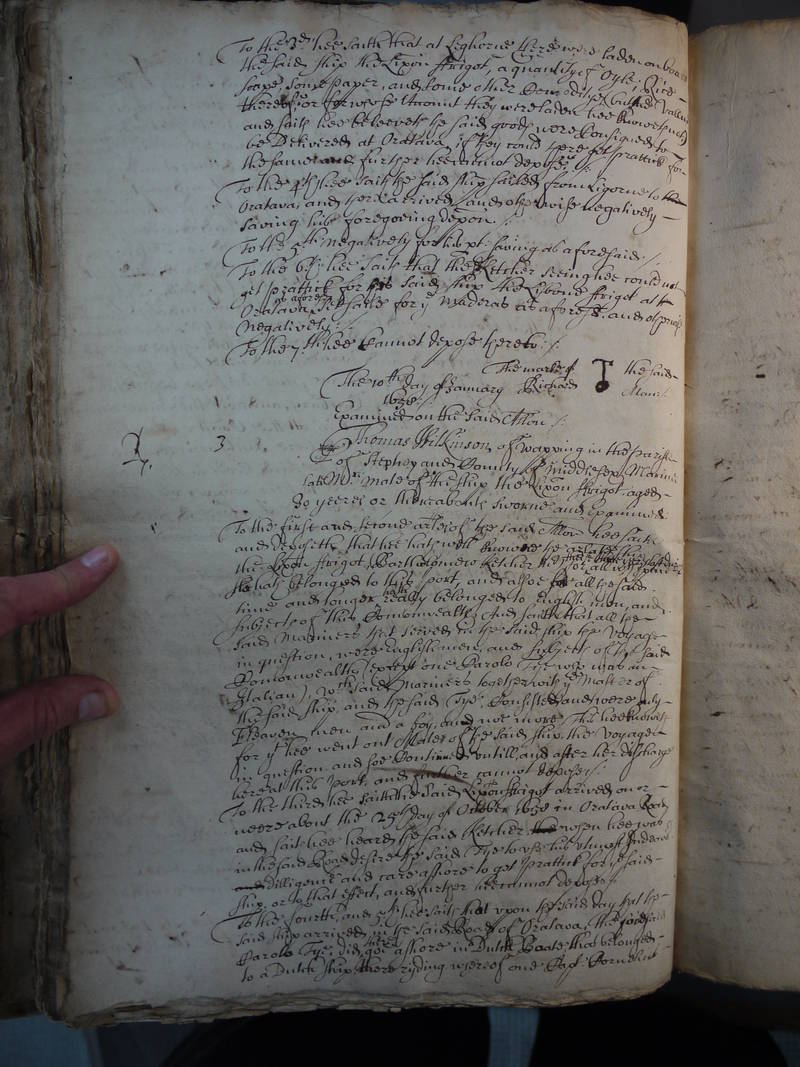 To the 3d. hee saith that at Leghorne there were laden on board
the said ship the Lixon ffrigot, a quantity of Oyle, Rice
soape, some paper, and some other
thereof or for whose Account they were laden hee knoweth not
and saith hee beleeveth the said goods were consigned to
be Delivered at Oratava, if they could there get prattick for
the same and further hee cannot depose /
To the 4th hee saith the said ship sailed from Ligorne to the
Oratava, and there arrived, and otherwise Negatively
saving his foregoeing depon. /
To the 5th Negatively for his pt. saving as aforesaid. /
To the 6th hee saith that the Ketcher seeing hee could not
get prattick for his said ship the Lixon ffrigot at
Oratava as aforesd set saile for ye Maderas as aforesd. and otherwise
Negatively. /
To the 7th hee Cannot depose hereto: /
The marke of the said
Richard
The 10th day of January
1650.
Examined on the said Allon /
3
Thomas Wilkinson of Wapping in the parish
of Stepney and County of Middlesex Mariner
late Mrs Mate of the ship the Lixon ffrigot aged
30 yeeres or thereabouts sworne and examined
To the first and second arles of the said Allon hee saith
and deposeth that hee hath well knowne the
the Lixon ffrigot, Bartholomew Ketcher
hath belonged to this port, and alsoe for all the said
time and longer really belonged to English men, and
subjects of this Comonwealth, And saith that all the
said Mariners that served in the said ship the voyage
in question, were Englishmen, and subjects of the said
Comonwealth (except one Carolo Tye who was an
Italian) wch said Mariners together with ye Master of
the said ship, and the said Tye Consisted and were only
Eleaven men and a boy, and noe more This hee knoweth
for yt hee went out Mate of the said ship, the voyage
in question, and soe Continued untill and after her discharge
here at this port, and further cannot depose /.
To the third hee saith the said Lixon ffrigot arrived on or
neere about the 25th day of October 1650 in Oratava Road
and saith hee heard the said Ketcher when hee was
in the said Road desire the said Tye to use his utmost Indeavor
dilligence and care ashore to get Prattick for ye said
ship, or to that effect, and further hee cannot depose /.
To the fourth and 5th hee saith that upon the said day that the
said ship arrived in the said Road of Oratava, the foresaid
Carolo Tye, did goe ashore in Dutch Boate that belonged
to a Dutch ship there ryding whereof one Capt. Cornelius